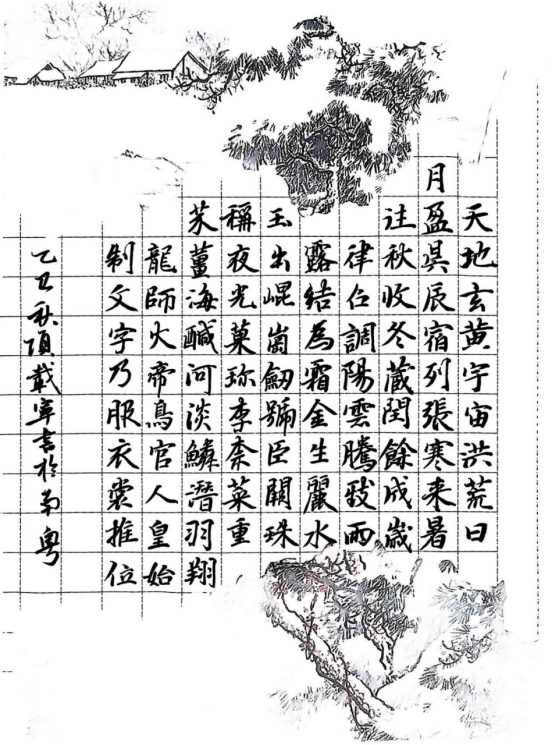 天地玄黄宇宙洪荒日
月盈昃辰宿列張寒来暑
往秋收冬蔵閏餘成歳
律吕調陽雲騰致雨
露結為霜金生麗水
玉出崐崗劒號巨闕珠
稱夜光菓珎李柰菜重
芥薑海鹹河淡鱗潛羽翔
龍師火帝鳥官人皇始
制文字乃服衣裳推位
乙丑秋項載寧書於南粤